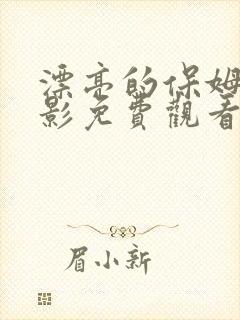 漂亮的保姆
影免費觀看
眉小新